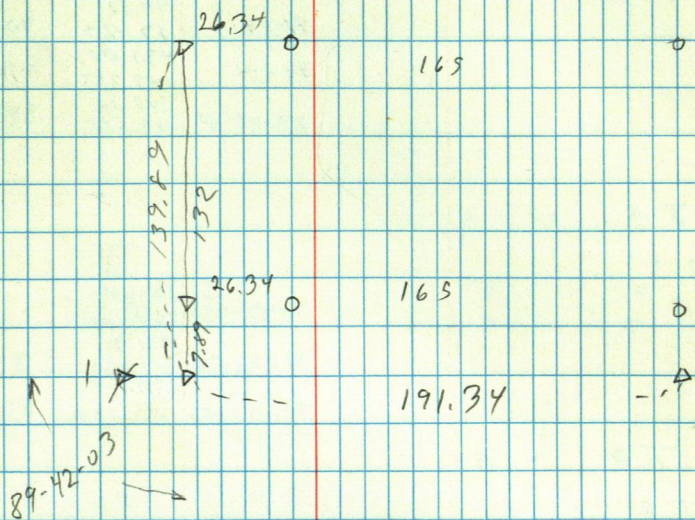 26.34
165
139.89
132
26.34
165
7.89
1
191.34
89-42-03